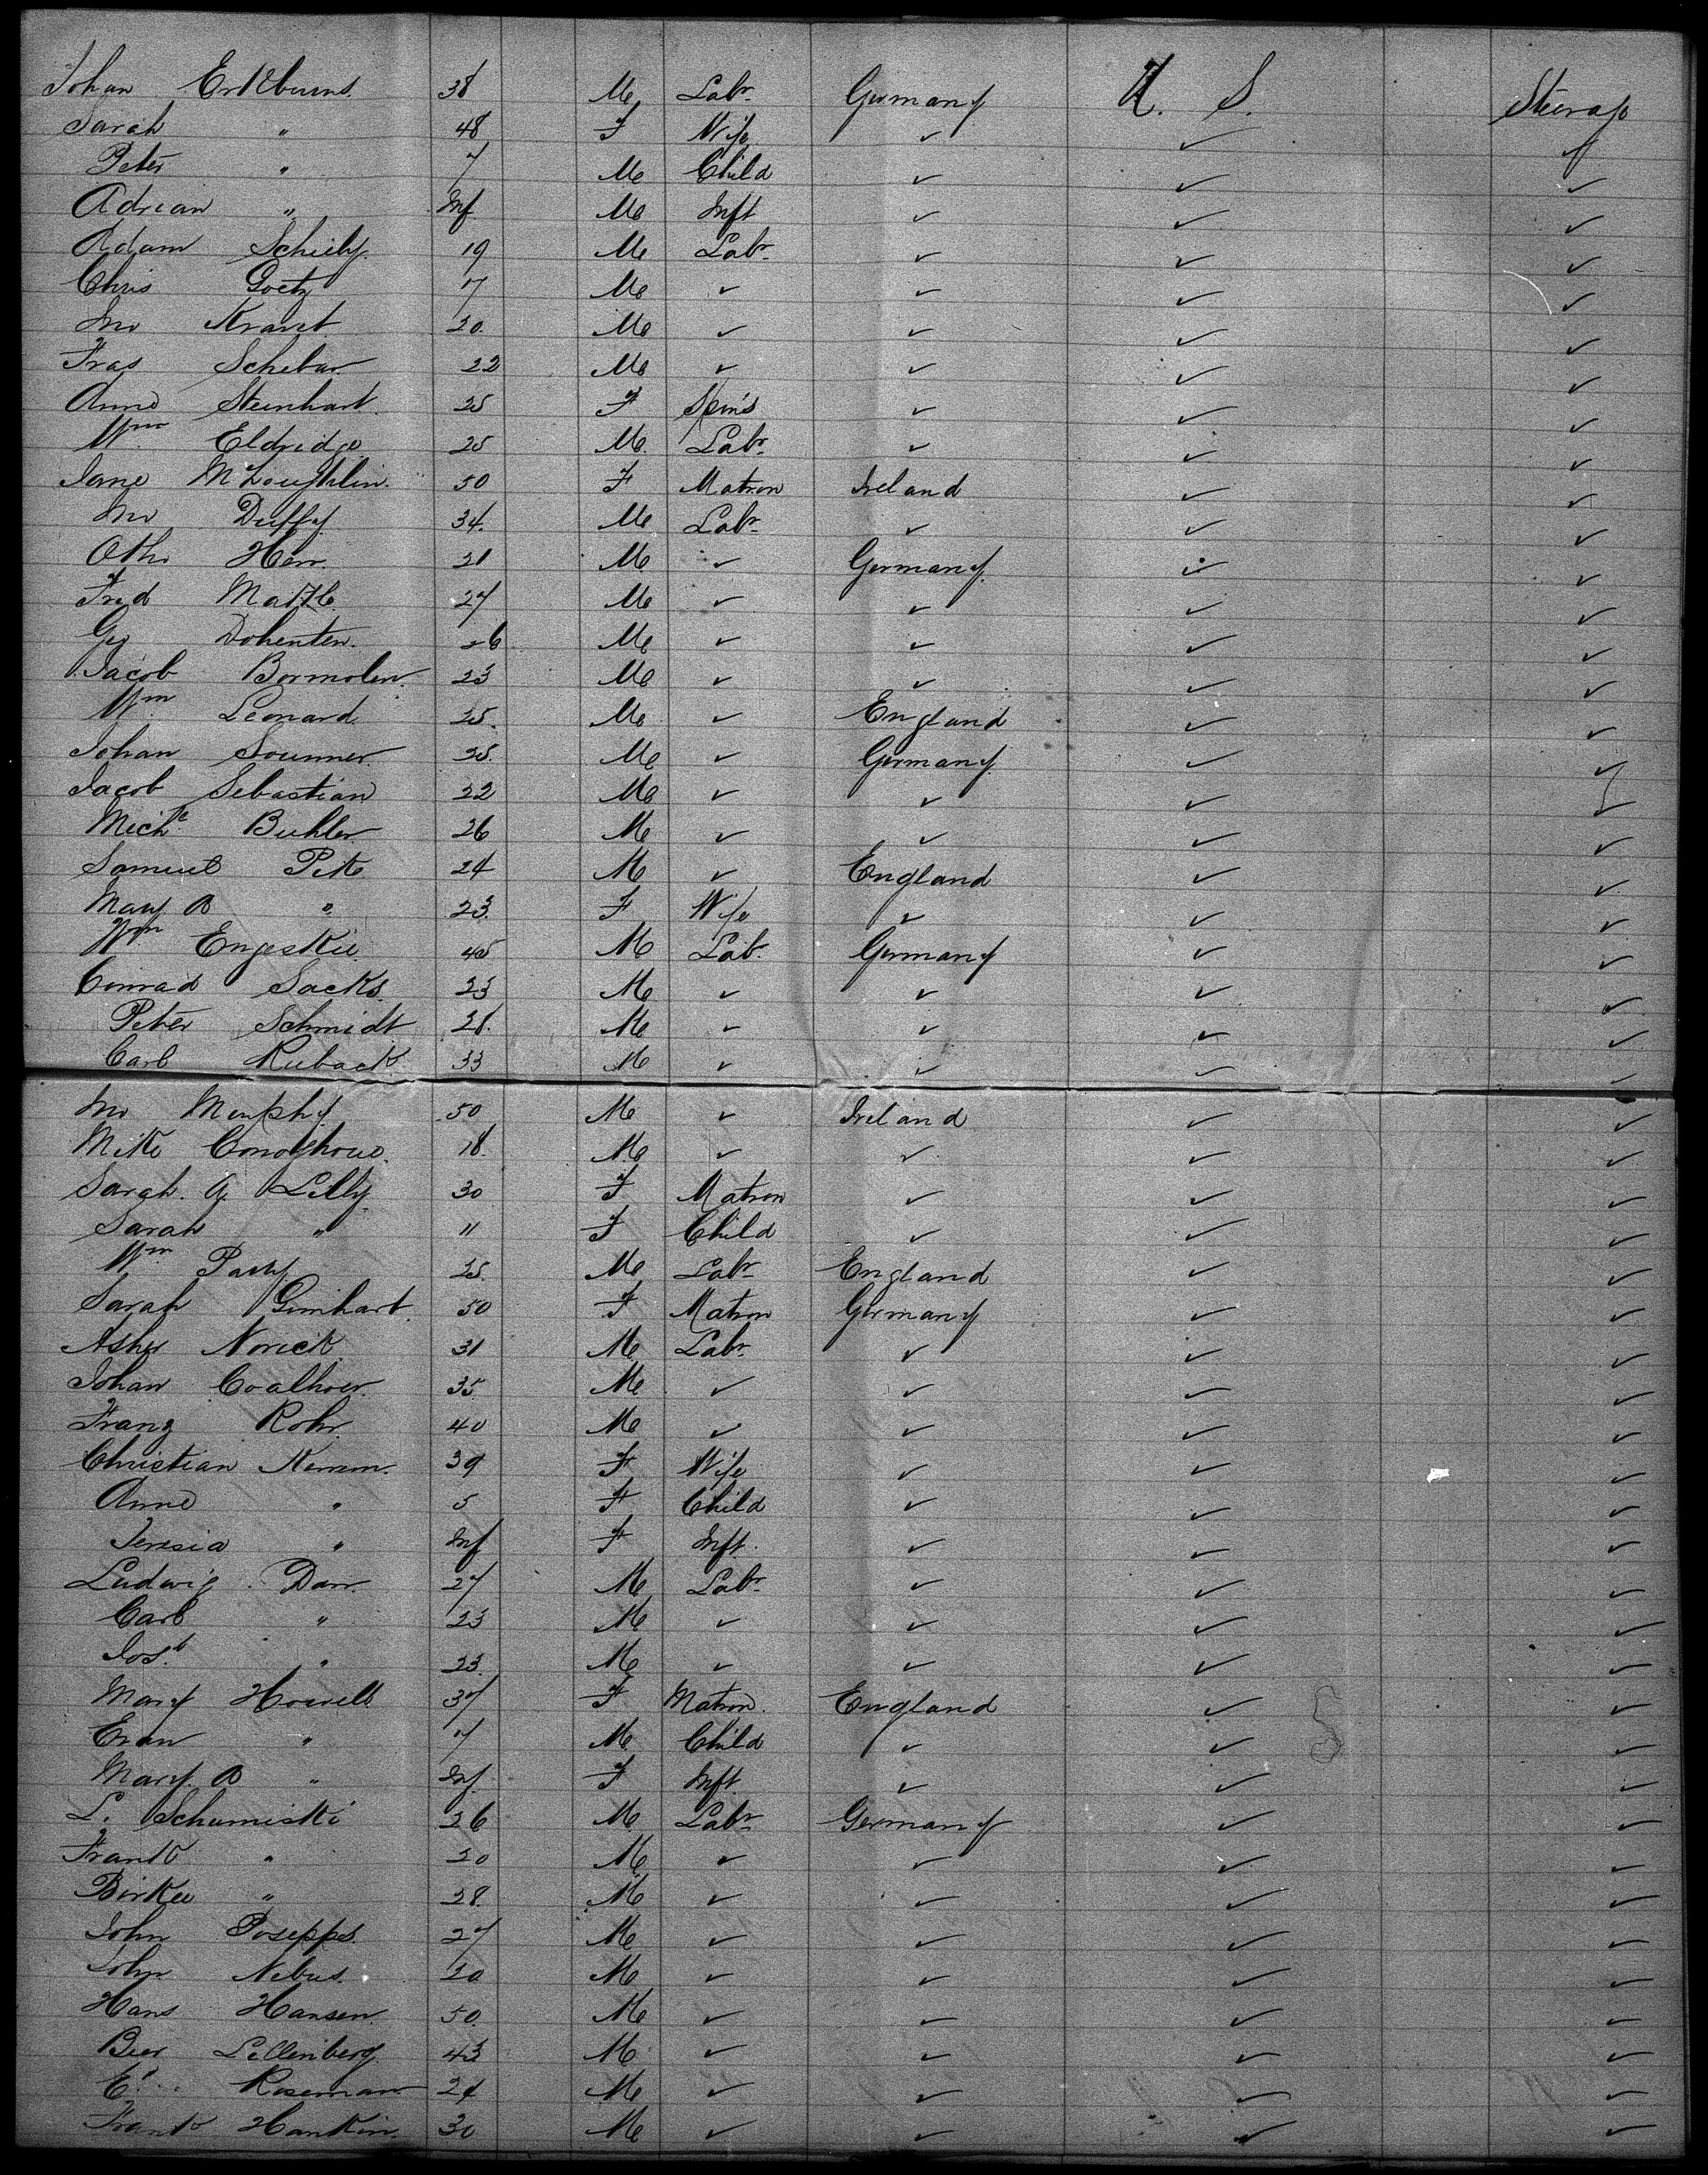 Johan 38 M Labr Germany U. S. Steerage
Sarah " 48 F Wife ✓ ✓ ✓
Peter " 7 M Child ✓ ✓ ✓
Adrian " Inf M Inft ✓ ✓ ✓
Adam 19 M Labr ✓ ✓ ✓
Chris Goetz 17 M ✓ ✓ ✓ ✓
Jno 20 M ✓ ✓ ✓ ✓
Fras Scheber 22 M ✓ ✓ ✓ ✓
Anne Steinhart 25 F Spins ✓ ✓ ✓
Wm Eldridge 25 M Labr ✓ ✓ ✓
Jane McLoughlin 50 F Matron Ireland ✓ ✓
Jno Duffy 34 M Labr ✓ ✓ ✓
Otho Herr 21 M ✓ Germany ✓ ✓
Fred 27 M ✓ ✓ ✓ ✓
Geo Dohenten 26 M ✓ ✓ ✓ ✓
Jacob Bormolen 23 M ✓ ✓ ✓ ✓
Wm Leonard 25 M ✓ England ✓ ✓
Johan Sounner 25 M ✓ Germany ✓ ✓
Jacob Sebastian 22 M ✓ ✓ ✓ ✓
Michl Buhler 26 M ✓ ✓ ✓ ✓
Samuel Pike 24 M ✓ England ✓ ✓
Mary A " 23 F Wife ✓ ✓ ✓
Wm Engeskie 45 M Labr Germany ✓ ✓
Conrad Sacks 23 M ✓ ✓ ✓ ✓
Peter Schmidt 28 M ✓ ✓ ✓ ✓
Carl Ruback 33 M ✓ ✓ ✓ ✓
Jno Murphy 50 M ✓ Ireland ✓ ✓
Mike Conoghoue 18 M ✓ ✓ ✓ ✓
Sarah A Lilly 30 F Matron ✓ ✓ ✓
Sarah " 11 F Child ✓ ✓ ✓
Wm Parry 25 M Labr England ✓ ✓
Sarah Gunhart 50 F Matron Germany ✓ ✓
Asher Norick 31 M Labr ✓ ✓ ✓
Johan Coalhoer 35 M ✓ ✓ ✓ ✓
Franz Rohr 40 M ✓ ✓ ✓ ✓
Christian Kemm 39 F Wife ✓ ✓ ✓
Anne " 5 F Child ✓ ✓ ✓
Teresia " Inf F Inft ✓ ✓ ✓
Ludwig Darr 27 M Labr ✓ ✓ ✓
Carl " 23 M ✓ ✓ ✓ ✓
Josh " 23 M ✓ ✓ ✓ ✓
Mary Howell 37 F Matron England ✓ ✓
Evan " 7 M Child ✓ ✓ ✓
Mary A " Inf F Inft ✓ ✓ ✓
L. Schumiski 26 M Labr Germany ✓ ✓
Frank " 20 M ✓ ✓ ✓ ✓
Birkee " 28 M ✓ ✓ ✓ ✓
John Posepps 27 M ✓ ✓ ✓ ✓
John Nebus 20 M ✓ ✓ ✓ ✓
Hans Hansen 50 M ✓ ✓ ✓ ✓
Beer Lellenberg 43 M ✓ ✓ ✓ ✓
Ed Roseman 24 M ✓ ✓ ✓ ✓
Frank Hankin 30 M ✓ ✓ ✓ ✓